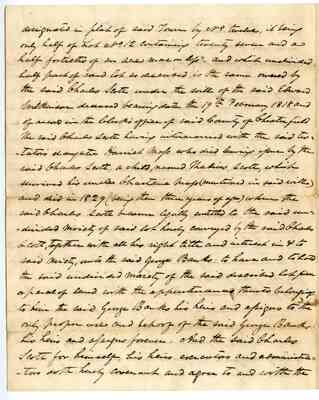 designated in plat of said Town by No. twelve, it being
only half of Lot No. 12 containing twenty seven and a
half fortieths of an acre more or less and which undivided
half part of said lot as deceased is the same owned by
the said Charles Scott under the will of the said Edward
deceased bearing date the 19th February 1818 and
of record in the Clerks office of said County of Chesterfield
the said Charles Scott having intermarried with the said tes-
tators daughter Hannah who died having issue by the
said Charles Scott, a child, named Scott, which
survived his mother (mentioned in said will)
and died in 1829 (being then three years of age) whereon the
said Charles Scott became legally entitled to the said un-
divided moiety of said lot hereby conveyed by the said Charles
Scott, together with all his right title and interest in & to
said moiety, unto the said George Banks: to have and to hold
the said undivided moiety of the said described lot piece
or parcel of land with the appurtenances thereto belonging
to him the said George Banks his heirs and assigns to the
only proper use and behoof of the said George Banks
his heirs and assigns forever. And the said Charles
Scott for himself, his heirs executors and administra-
-tors doth hereby covenant and agree to and with the